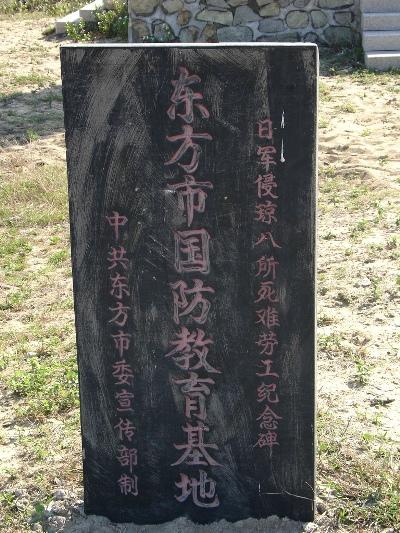 日军侵琼八所死难劳工纪念碑
东方市国防教育基地
中共东方市委宣传部制